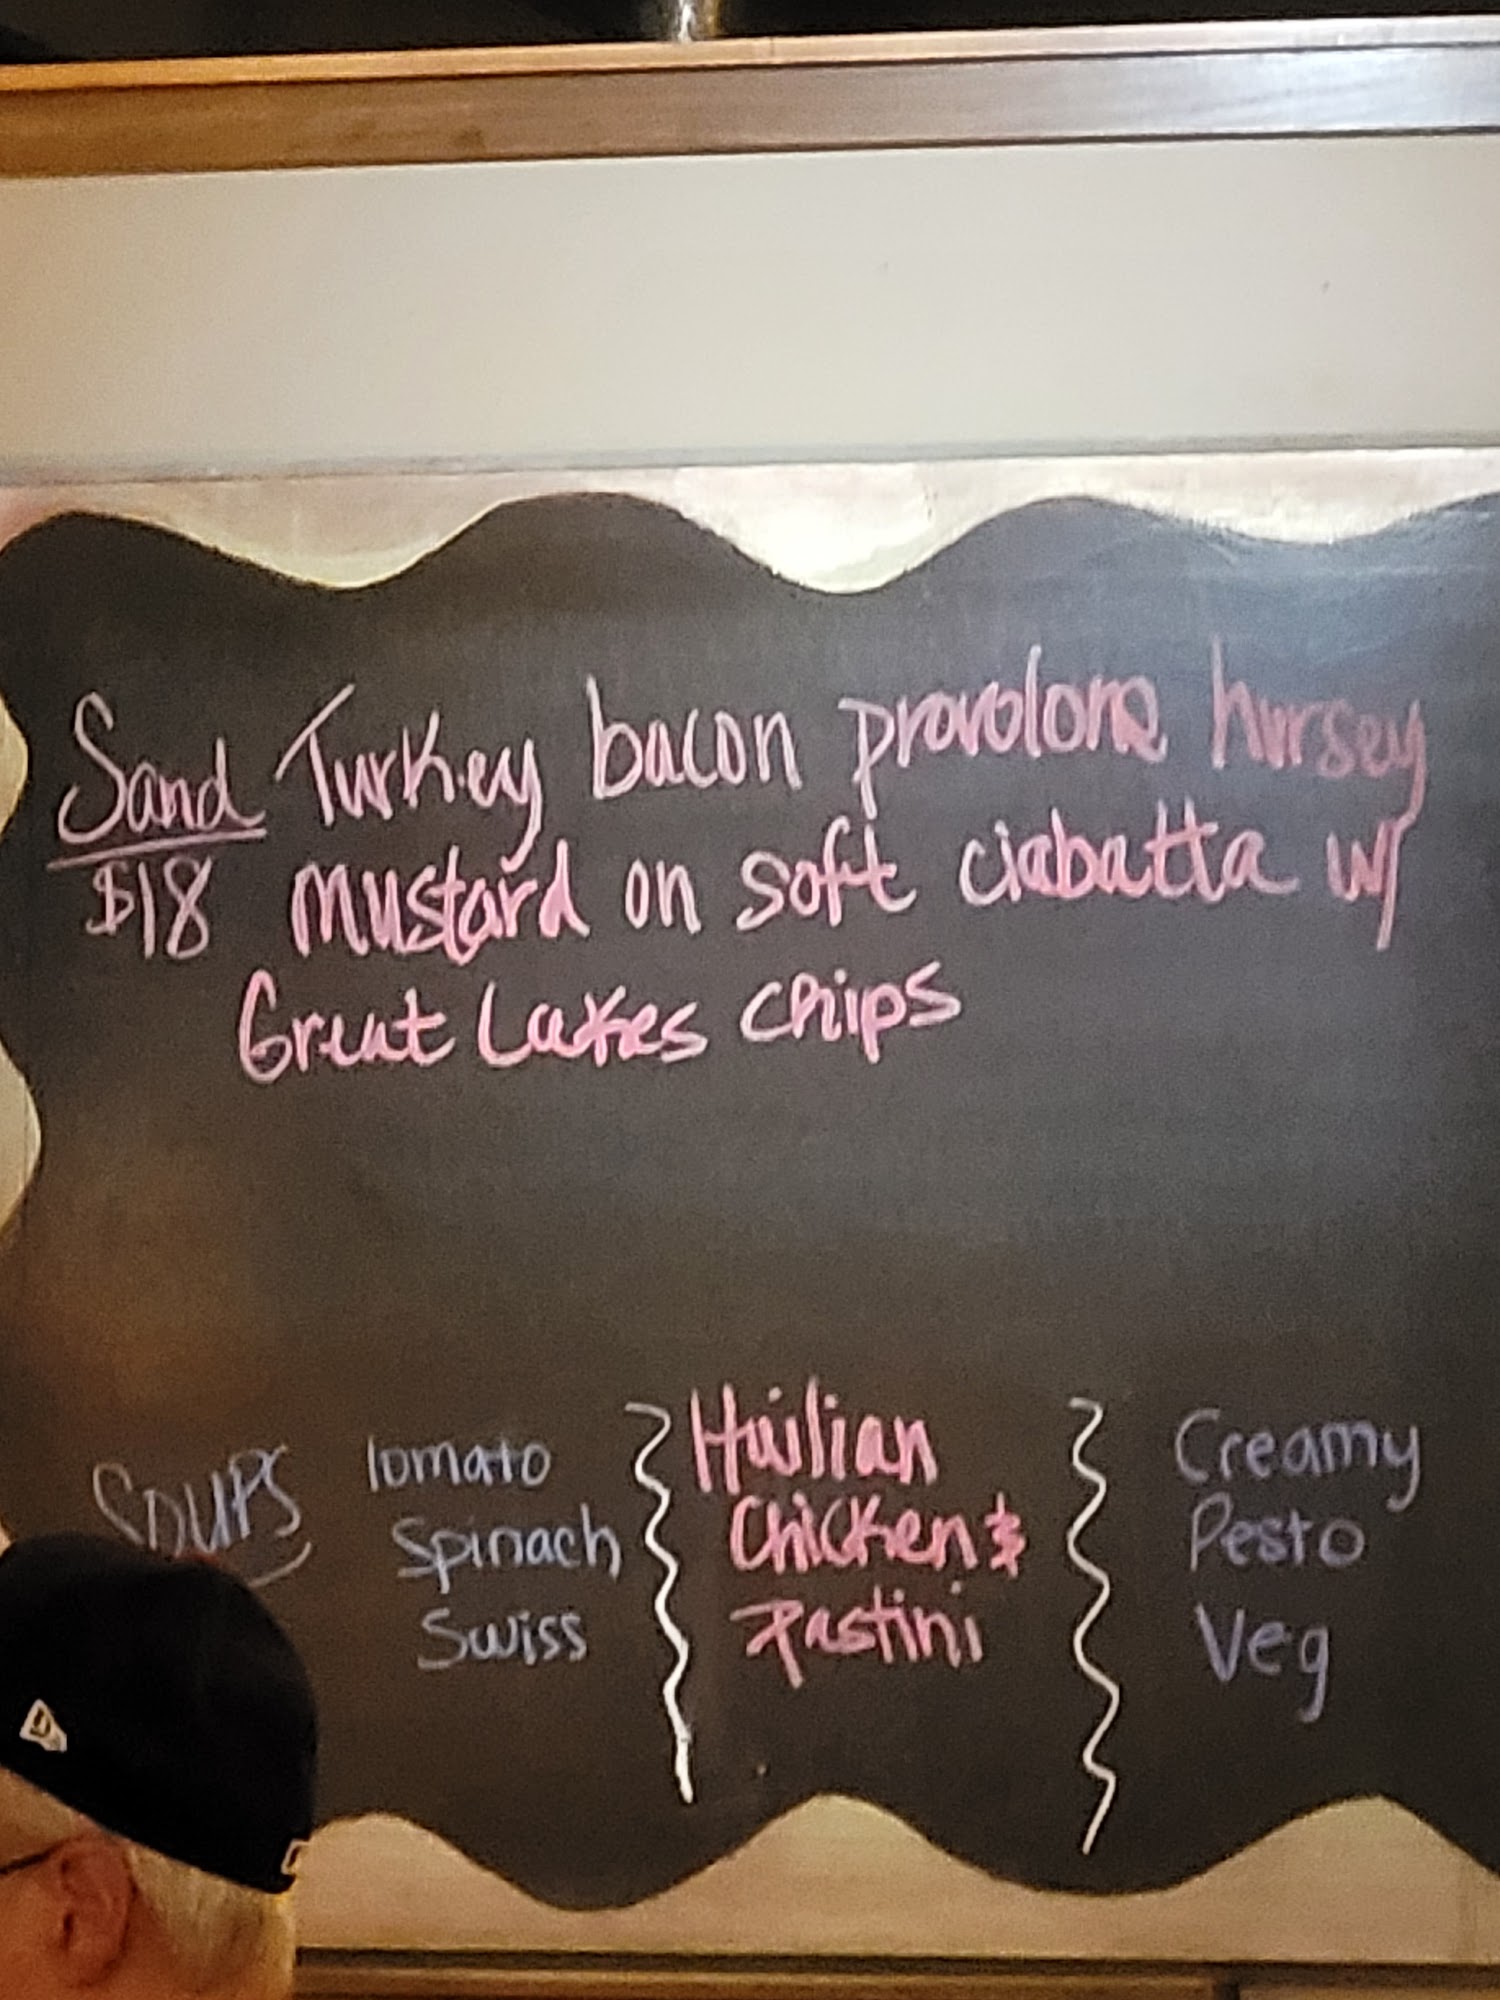 Sand Turkey bacon provolone hursey
$18 mustard on soft ciabatta w/
Great Lakes chips
Soups
Tomato
Spinach
Swiss
Chicken &
Pastini
Creamy
Pesto
Veg